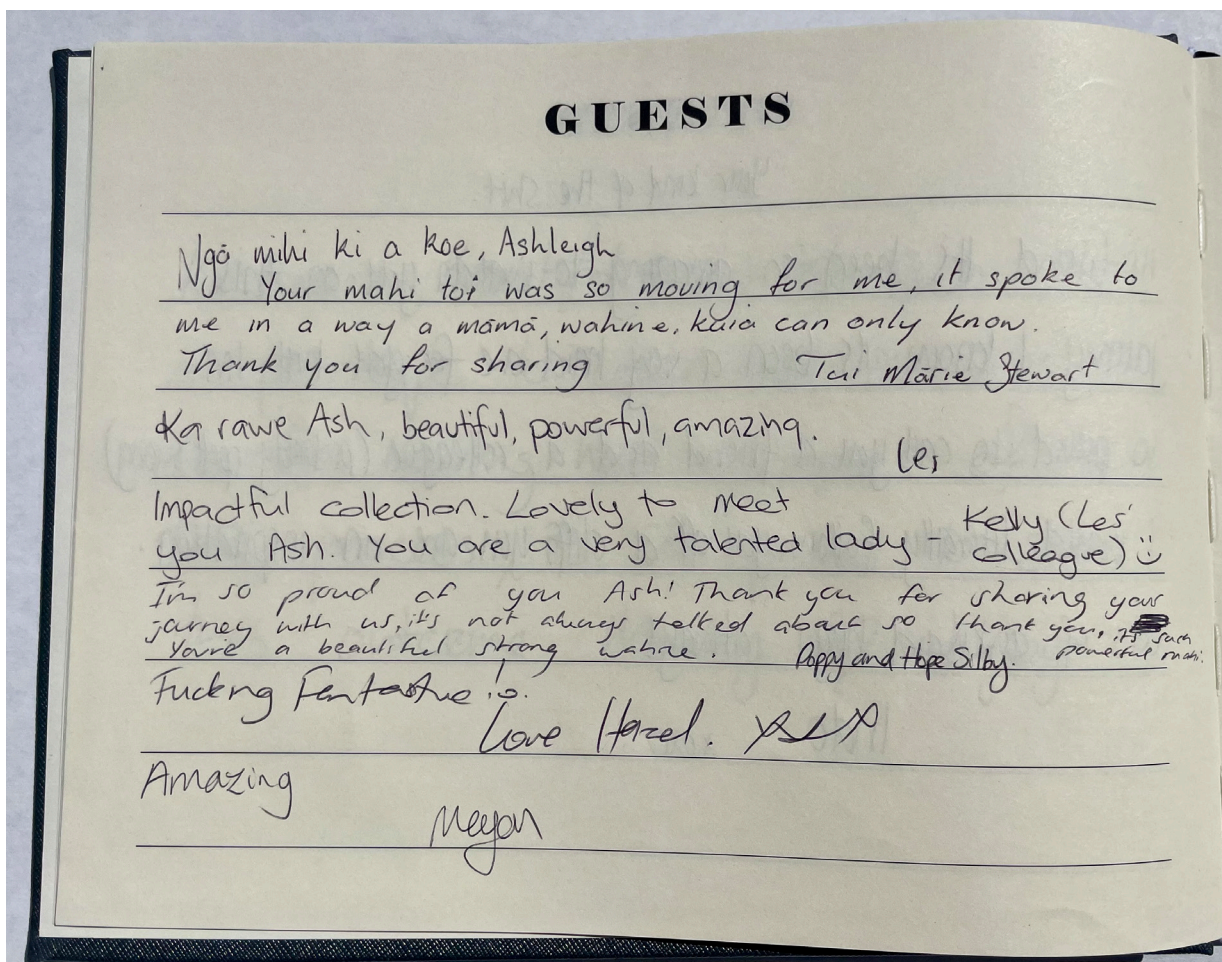 GUESTS
Ngā mihi ki a koe, Ashleigh
Your mahi toi was so moving for me, it spoke to
me in a way a māmā, wahine, kuia can only know.
Thank you for sharing Tui Mārie Stewart
Ka rawe Ash, beautiful, powerful, amazing.
Les
Impactful collection. Lovely to meet
you Ash. You are a very talented lady - Kelly (Les'
colleague) :)
I'm so proud of you Ash! Thank you for sharing your
journey with us, it's not always talked about so thank you, it's such
You're a beautiful strong wahine. Poppy and Hope Silby. powerful mahi.
Fucking Fantastic!
Love Hazel. xxx
Amazing
Megan